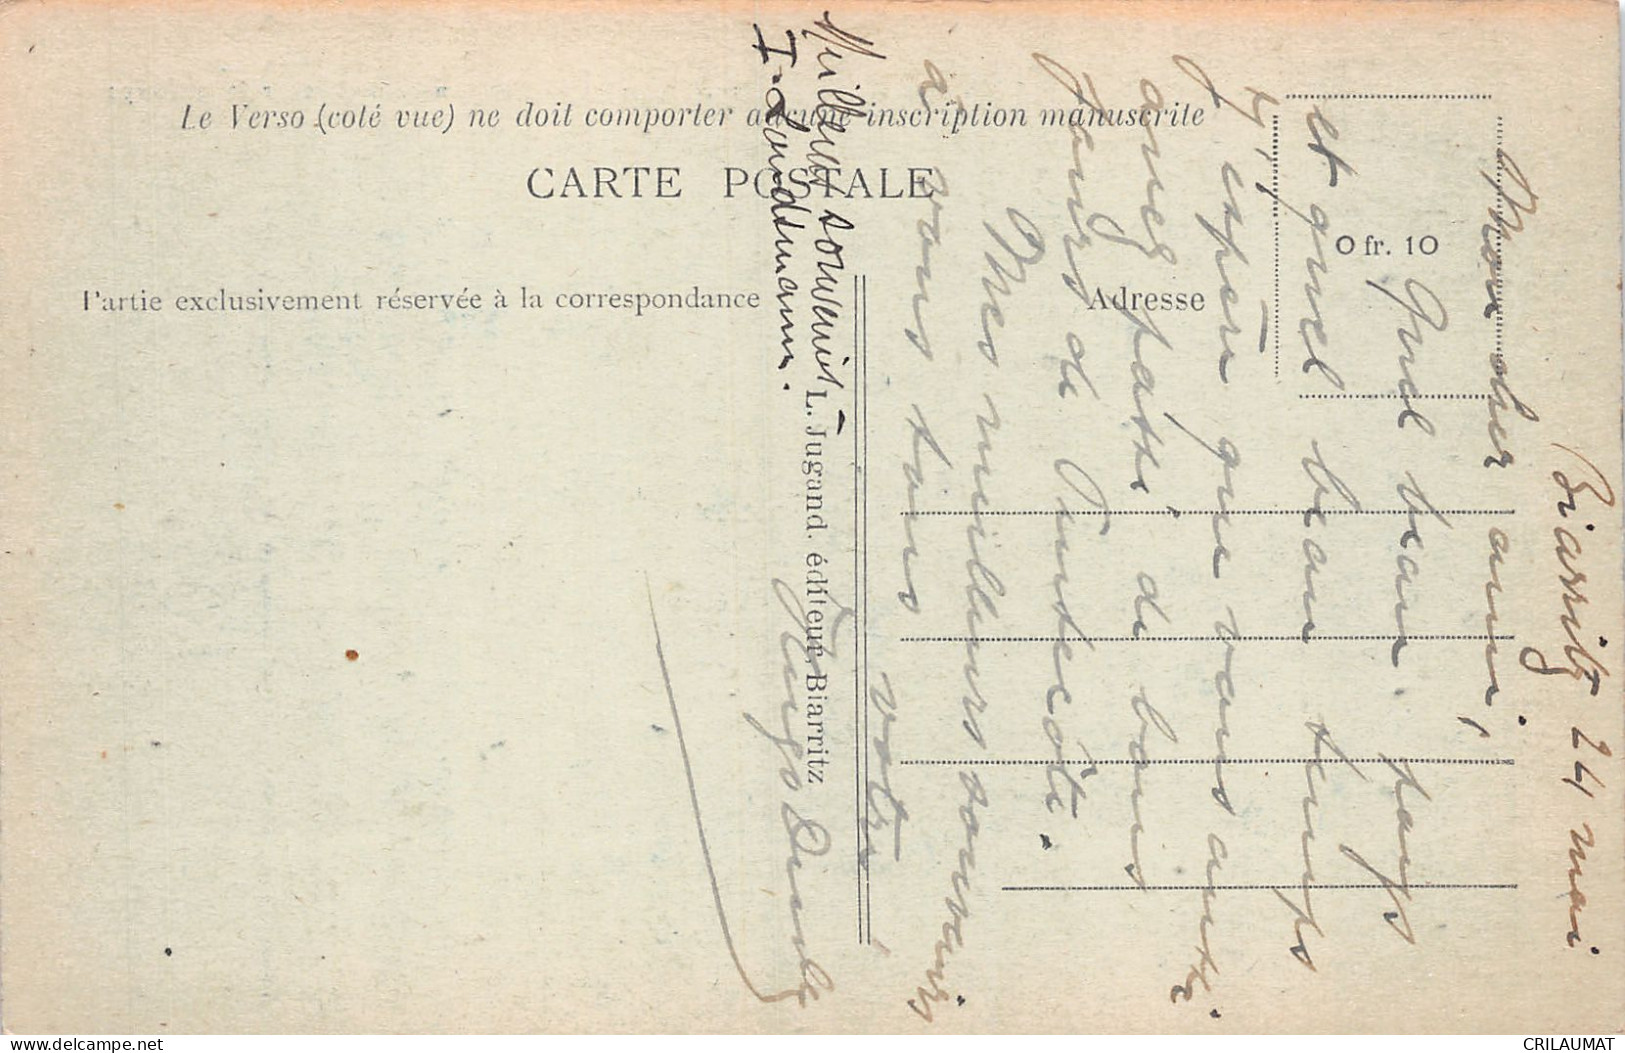 Le Verso (coté vue) ne doit comporter aucune inscription manuscrite
CARTE POSTALE
0 fr. 10
Partie exclusivement réservée à la correspondance
Adresse
L. Jugand. éditeur Biarritz
Biarritz 24 mai
Mon cher ami,
Quel beau pays
et quel beau temps
J'espère que vous autres
avez passé de bons
jours de Pentecôte.
Mes meilleurs souvenirs
à vous tous
votre
Hugo
Meilleurs souvenirs
I. Landtmann.
delcampe.net
CRILAUMAT